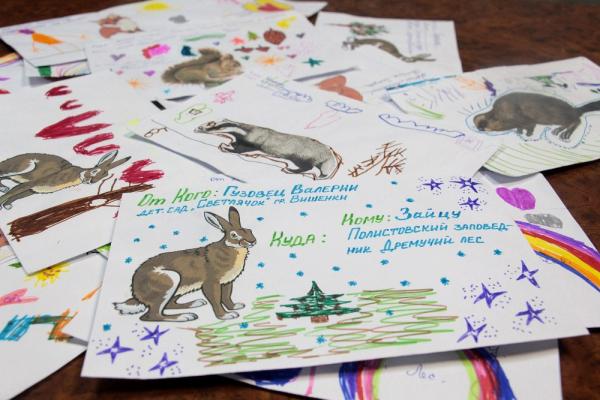 От Кого: Гузовец Валерии
дет. сад „Светлячок" гр. Вишенки
Кому: Зайцу
Куда: Полистовский заповед-
ник Дремучий лес
Лес.